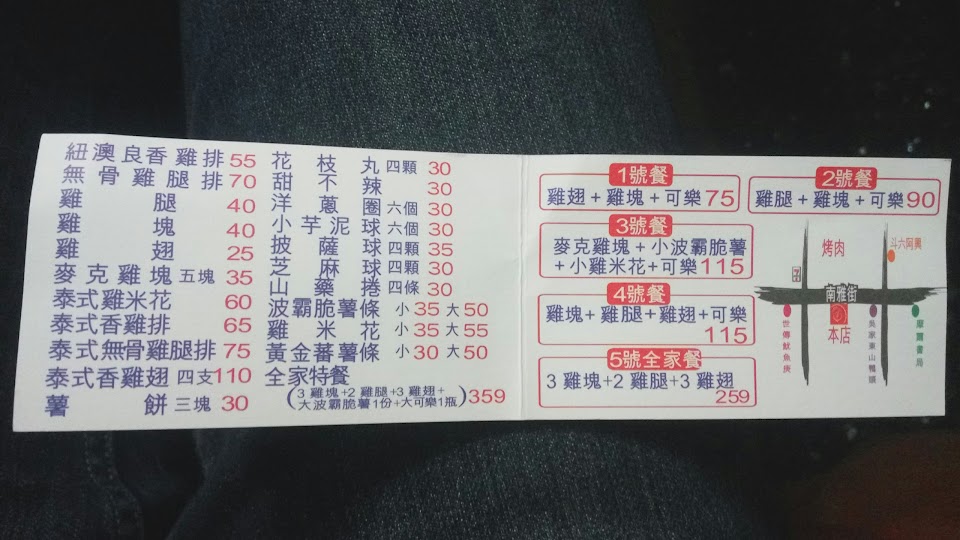 紐澳良香雞排 55
無骨雞腿排 70
雞腿 40
雞塊 40
雞翅 25
麥克雞塊 五塊 35
泰式雞米花 60
泰式香雞排 65
泰式無骨雞腿排 75
泰式香雞翅 四支 110
薯餅 三塊 30
花枝丸 四顆 30
甜不辣 30
洋蔥圈 六個 30
小芋泥球 六個 30
披薩球 四顆 35
芝麻球 四顆 30
山藥捲 四條 30
波霸脆薯條 小 35 大 50
雞米花 小 35 大 55
黃金蕃薯條 小 30 大 50
全家特餐
(3 雞塊+2 雞腿+3 雞翅+
大波霸脆薯1份+大可樂1瓶) 359
1號餐
雞翅+雞塊+可樂 75
2號餐
雞腿+雞塊+可樂 90
3號餐
麥克雞塊+小波霸脆薯
+小雞米花+可樂 115
4號餐
雞塊+雞腿+雞翅+可樂
115
5號全家餐
3 雞塊+2 雞腿+3 雞翅
259
烤肉
斗六阿興
7
南雅街
本店
世傳魷魚焿
吳家東山鴨頭
摩爾書局